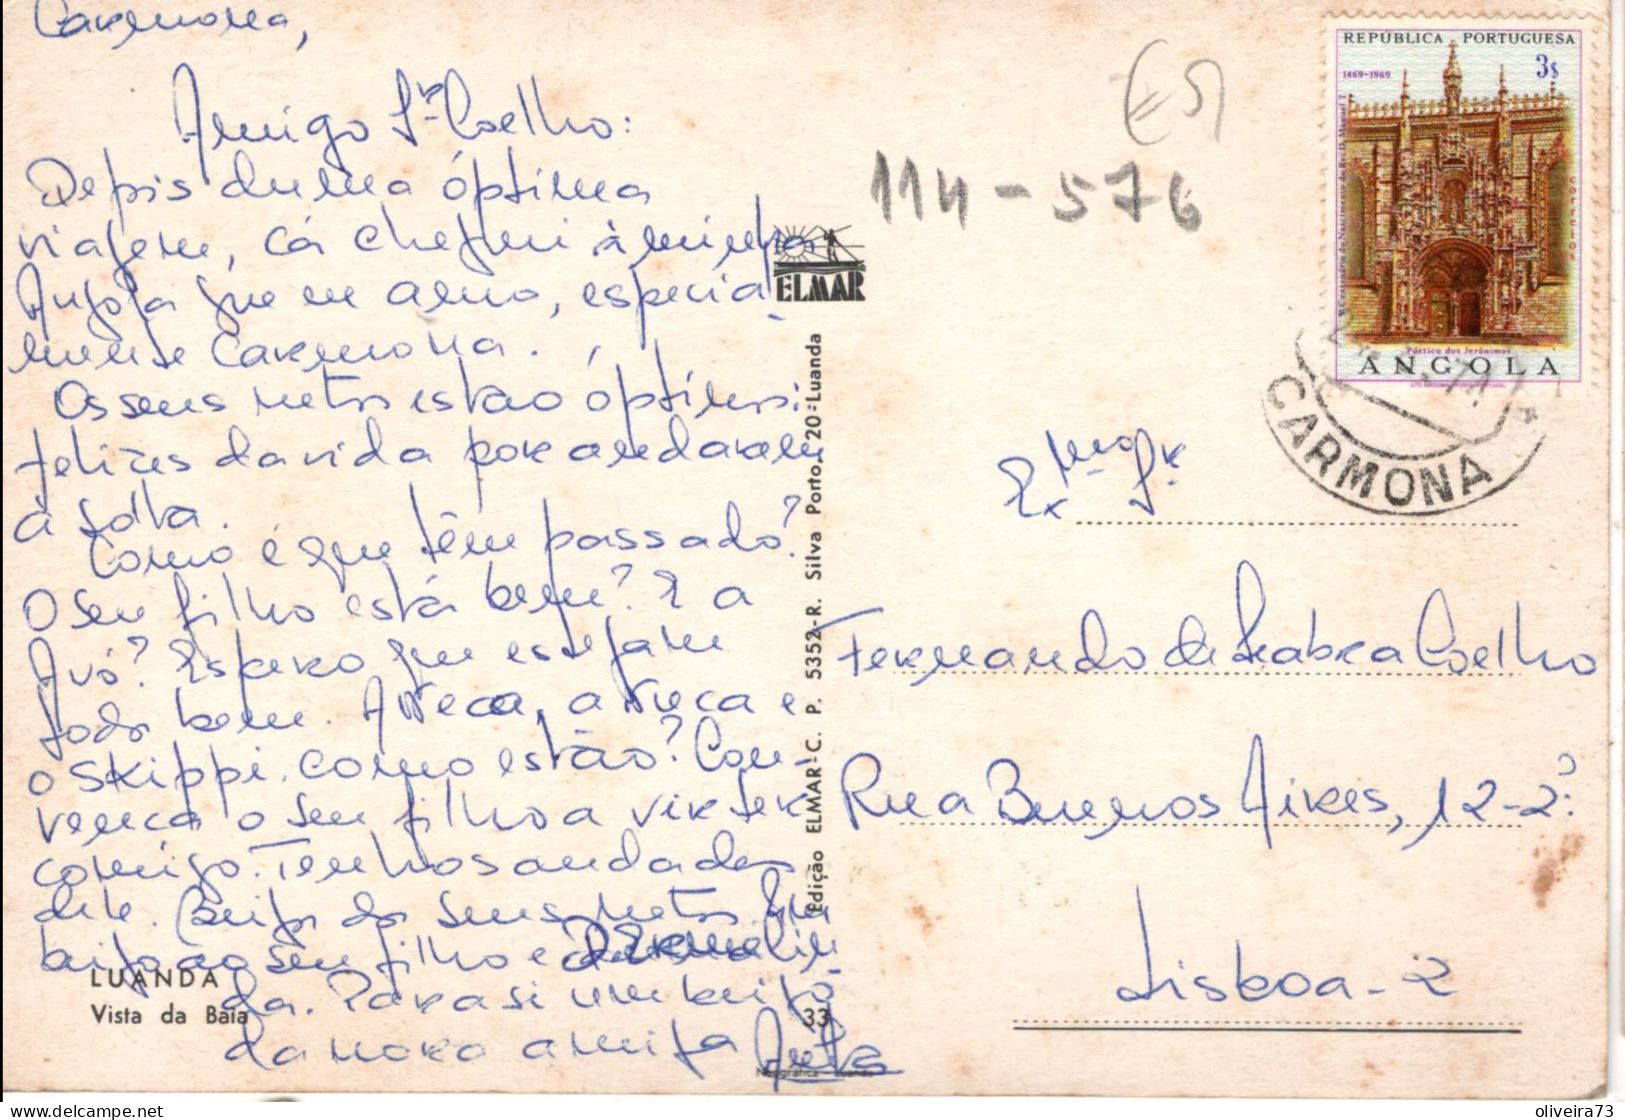 Carmona,
Amigo Sr Coelho:
Depis duma óptima
viagem, cá cheguei à minha
Angola que eu amo, especial-
mente Carmona.
Os seus netos estão óptimos:
felizes da vida por andarem
à solta.
Como é que têm passado?
O seu filho está bem? E a
Avó? Espero que estejam
todos bem. A
o Skippi. como estão? Con-
vença o seu filho a vir ter
comigo. Temos saudades
dele. Beijos dos seus netos. Um
beijo ao seu filho e
da. Para si um beijo
da nora amiga
LUANDA
Vista da Baía
33
Neográfica - Luanda
Edição ELMAR-C. P. 5352-R. Silva Porto, 20-Luanda
ELMAR
€5
114-576
REPÚBLICA PORTUGUESA
1469-1969
3$
V Centenário do Nascimento do Rei D. Manuel I
CORREIOS
Pórtico dos Jerónimos
ANGOLA
CARMONA
Exmo Sr
Fernando de Seabra Coelho
Rua Buenos Aires, 12-2º
Lisboa-2
oliveira73